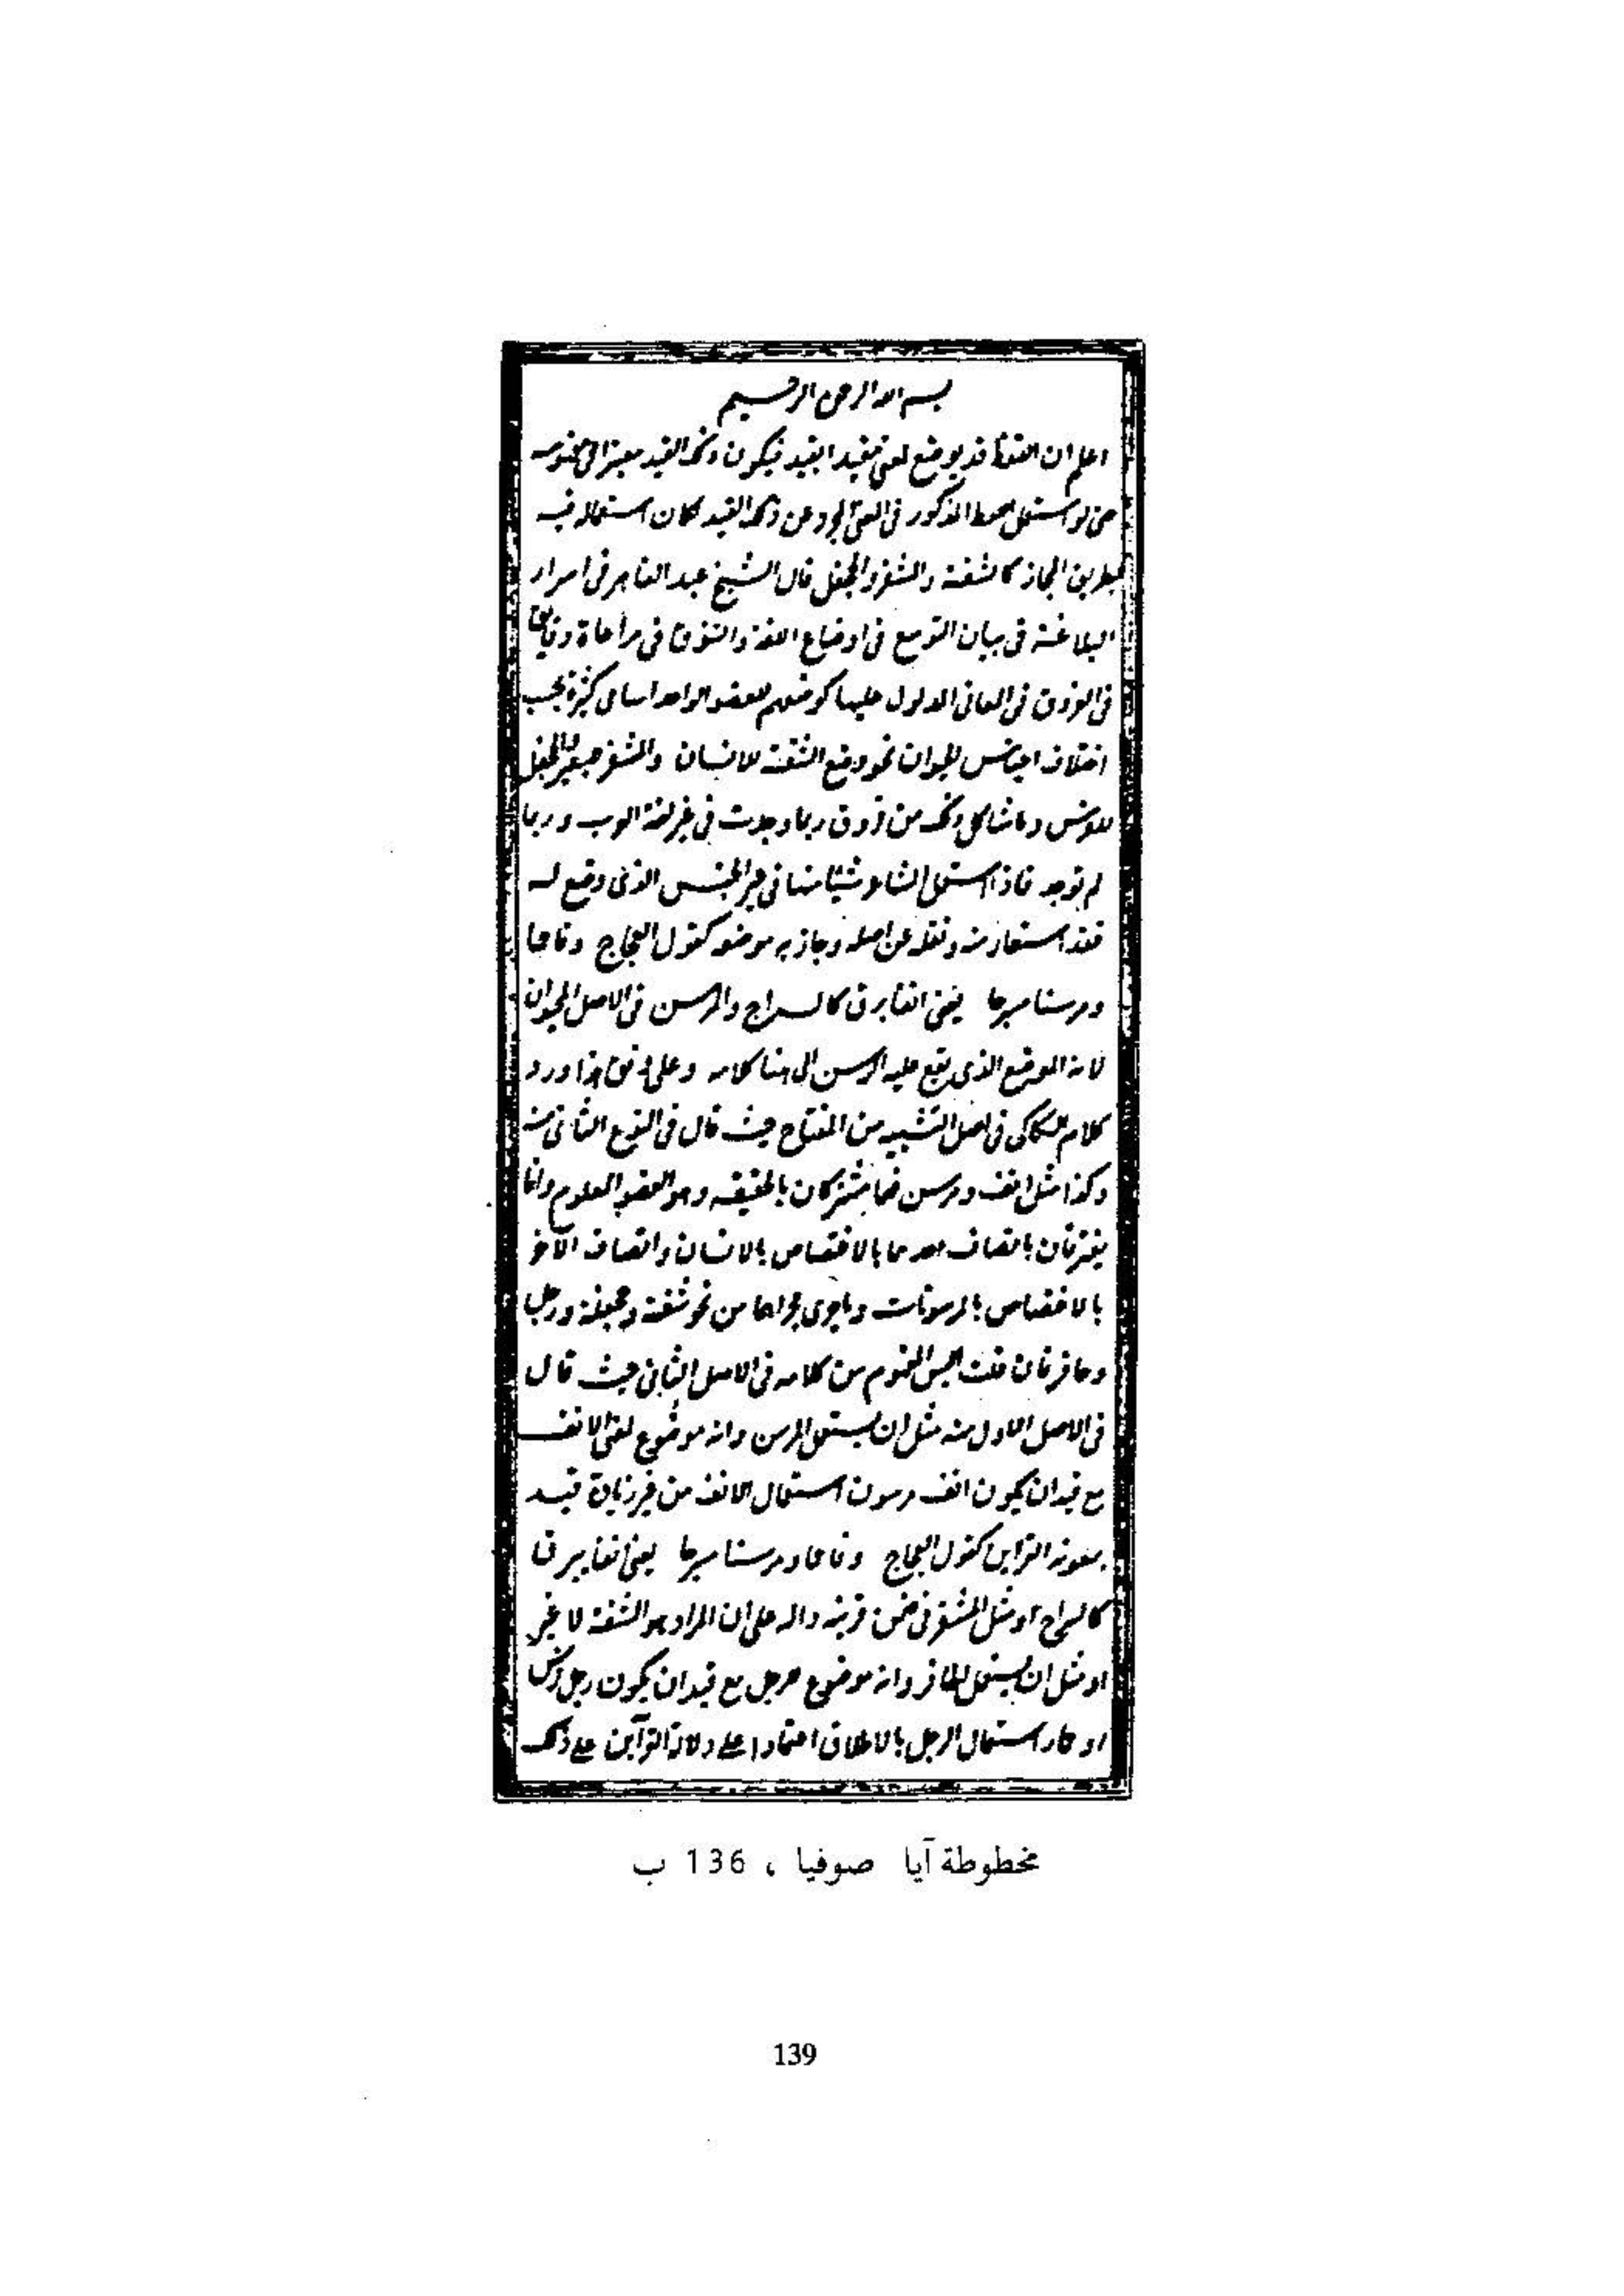 بسم الله الرحمن الرحيم
اعلم ان اللفظ قد يوضع لمعنى مقيد بقيد فيكون ذلك القيد معتبرا فى مفهومه
حتى لو استعمل اللفظ المذكور فى المعنى المجرد عن ذلك القيد لكان استعماله فيه
بطريق المجاز كالشفة والمشفر والجحفل قال الشيخ عبد القاهر فى اسرار
البلاغة فى بيان التوسع فى اوضاع اللغة والتنوق فى مراعاة دقائق
فى الفروق فى المعانى المدلول عليها كوضعهم للعضو الواحد اسامى كثيرة بحسب
اختلاف اجناس الحيوان نحو وضع الشفة للانسان والمشفر للبعير والجحفلة
للفرس وما شاكل ذلك من فروق ربما وجدت فى غير لغة العرب وربما
لم توجد فاذا استعمل الشاعر شيئا منها فى غير الجنس الذى وضع له
فقد استعاره منه ونقله عن اصله وجاز به موضعه كقول العجاج وفاحما
ومرسنا مسرجا يعنى انفا يبرق كالسراج والمرسن فى الاصل للحيوان
لانه الموضع الذى يقع عليه الرسن الى هنا كلامه وعلى وفق هذا ورد
كلام السكاكى فى اصل التشبيه من المفتاح حيث قال فى النوع الثانى منه
وكذا مثل انف ومرسن فهما مشتركان بالحقيقة وهو العضو المعلوم وانما
يفترقان باتصاف احدهما بالاختصاص بالانسان واتصاف الآخر
بالاختصاص بالمرسونات وما جرى مجراهما من نحو شفة وجحفلة ورجل
وحافر فان قلت اليس المفهوم من كلامه فى الاصل الثانى حيث قال
فى الاصل الاول منه مثل ان يستعمل المرسن وانه موضوع لمعنى الانف
مع قيد ان يكون انف مرسون استعمال الانف من غير زيادة قيد
بمعونة القراين كقول العجاج وفاحما ومرسنا مسرجا يعنى انفا يبرق
كالسراج او مثل المشفر فى ضمن قرينة دالة على ان المراد هو الشفة لا غير
او مثل ان يستعمل الحافر وانه موضوع للرجل مع قيد ان يكون رجل فرس
او حمار استعمال الرجل بالاطلاق اعتمادا على دلالة القرآين على ذلك
مخطوطة آيا صوفيا ، 136 ب
139